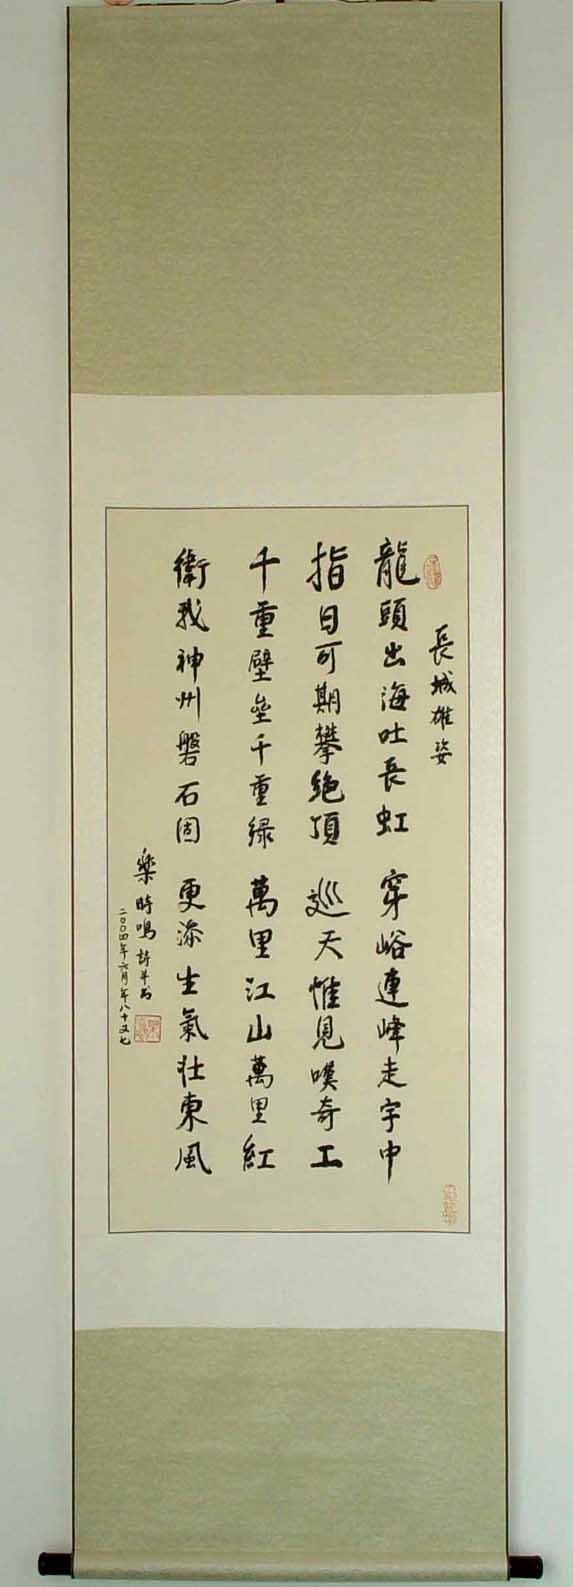 長城雄姿
龍頭出海吐長虹 穿峪連峰走宇中
指日可期攀絕頂 巡天惟見嘆奇工
千重壁壘千重綠 萬里江山萬里紅
衛我神州磐石固 更添生氣壯東風
樂時鳴詩并書
二〇〇四年六月年八十又七